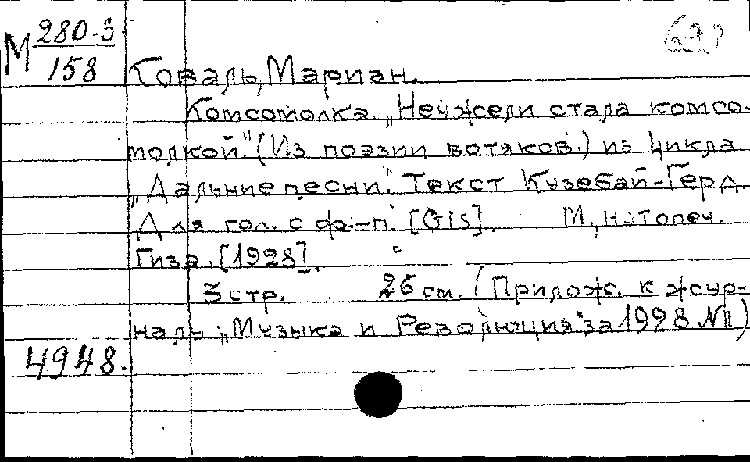 М 280-3
158
Коваль, Мариан.
Комсомолка. „Неужели стала комсо-
молкой." (Из поэзии вотяков.) из цикла
„Дальние песни." Текст Кузебай-Герд
Для гол. с ф-п. [Gis]. М, нотопеч.
Гиза. [1928].
3 стр. 26 см. (Прилож. к жур-
налу „Музыка и Революция" за 1928 №11)
4948.